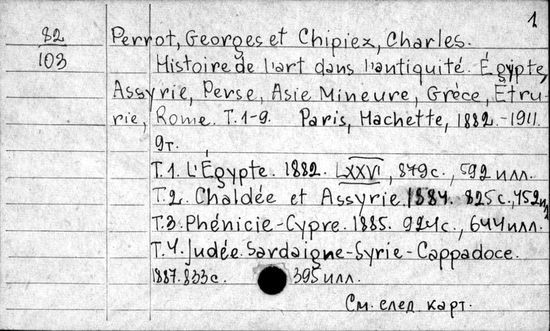 1
82
103
Perrot, Georges et Chipiez, Charles.
Histoire de l'art dans l'antiquité. Égypte,
Assyrie, Perse, Asie Mineure, Grèce, Étru-
rie, Rome. T.1-9. Paris, Hachette, 1882.-1911.
9т.
T.1. L'Égypte. 1882. LXXVI, 879с., 592 илл.
T.2. Chaldée et Assyrie. 1884. 825с., 452
T.3. Phénicie-Cypre. 1885. 924с., 644 илл.
T.4. Judée. Sardaigne-Syrie-Cappadoce.
1887. 833с. 395 илл.
См. след. карт.